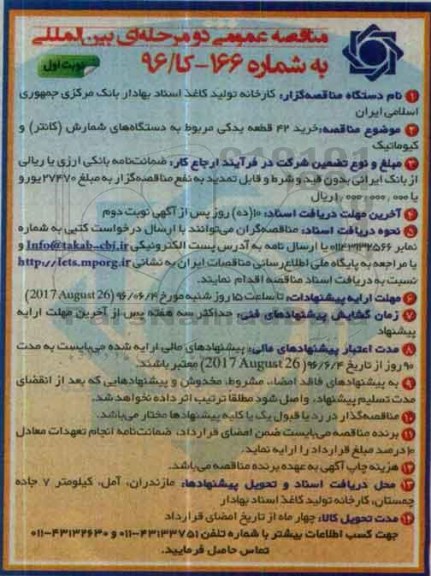 مناقصه عمومی دو مرحله‌ای بین‌المللی
به شماره ۱۶۶-کا/۹۶
نوبت اول
۱ نام دستگاه مناقصه‌گزار: کارخانه تولید کاغذ اسناد بهادار بانک مرکزی جمهوری
اسلامی ایران
۲ موضوع مناقصه: خرید ۴۲ قطعه یدکی مربوط به دستگاه‌های شمارش (کانتر) و
کیوماتیک
۳ مبلغ و نوع تضمین شرکت در فرآیند ارجاع کار: ضمانت‌نامه بانکی ارزی یا ریالی
از بانک ایرانی بدون قید و شرط و قابل تمدید به نفع مناقصه‌گزار به مبلغ ۲۷۴۷۰ یورو و
یا ۱,۰۰۰,۰۰۰,۰۰۰ ریال
۴ آخرین مهلت دریافت اسناد: ۱۰(ده) روز پس از آگهی نوبت دوم
۵ نحوه دریافت اسناد: مناقصه‌گران می‌توانند با ارسال درخواست کتبی به شماره
نمابر ۰۱۱۴۳۱۳۲۵۶۶ یا ارسال نامه به آدرس پست الکترونیکی Info@takab-cbi.ir و
یا مراجعه به پایگاه ملی اطلاع‌رسانی مناقصات ایران به نشانی http://iets.mporg.ir
نسبت به دریافت اسناد مناقصه اقدام نمایند.
۶ مهلت ارایه پیشنهادات: تا ساعت ۱۵ روز شنبه مورخ ۹۶/۰۶/۴ (2017 August 26)
۷ زمان گشایش پیشنهادهای فنی: حداکثر سه هفته پس از آخرین مهلت ارایه
پیشنهاد
۸ مدت اعتبار پیشنهادهای مالی: پیشنهادهای مالی ارایه شده می‌بایست به مدت
۹۰ روز از تاریخ ۹۶/۶/۴ (2017 August 26) معتبر باشند.
۹ به پیشنهادهای فاقد امضاء، مشروط، مخدوش و پیشنهادهایی که بعد از انقضای
مدت تسلیم پیشنهاد، واصل شود مطلقا ترتیب اثر داده نخواهد شد.
۱۰ مناقصه‌گذار در رد یا قبول یک یا کلیه پیشنهادها مختار می‌باشد.
۱۱ برنده مناقصه می‌بایست ضمن امضای قرارداد، ضمانت‌نامه انجام تعهدات معادل
۱۰ درصد مبلغ قرارداد را ارایه نماید.
۱۲ هزینه چاپ آگهی به عهده برنده مناقصه می‌باشد.
۱۳ محل دریافت اسناد و تحویل پیشنهادها: مازندران، آمل، کیلومتر ۷ جاده
چمستان، کارخانه تولید کاغذ اسناد بهادار
۱۴ مدت تحویل کالا: چهار ماه از تاریخ امضای قرارداد
جهت کسب اطلاعات بیشتر با شماره تلفن ۴۳۱۳۳۷۵۱-۰۱۱ و ۴۳۱۳۲۶۳۰-۰۱۱
تماس حاصل فرمایید.